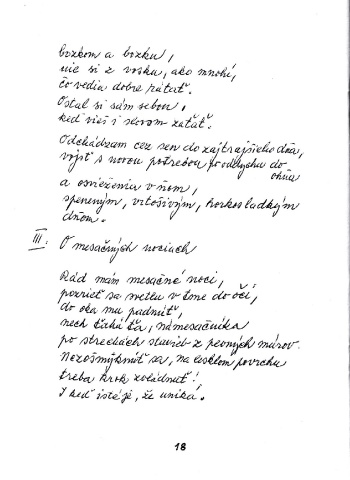 bozkom a bozku,
nie si z vosku, ako mnohí,
čo vedia dobre rátať.
Ostal si sám sebou,
keď vieš i slovom zaťať.
Odchádzam cez sen do zajtrajšieho dňa,
vojsť s novou potrebou po oddychu do ohňa
a osvieženia v ňom,
speneným, vrtošivým, horkosladkým
dňom.
III. O mesačných nociach
Rád mám mesačné noci,
pozrieť sa svetu v tme do očí,
do oka mu padnúť,
nech ťahá ťa, námesačníka
po strechách stavieb z pevných múrov.
Nezošmyknúť sa, na lesklom povrchu
treba krok zvládnuť!
I keď isté je, že uniká.
18